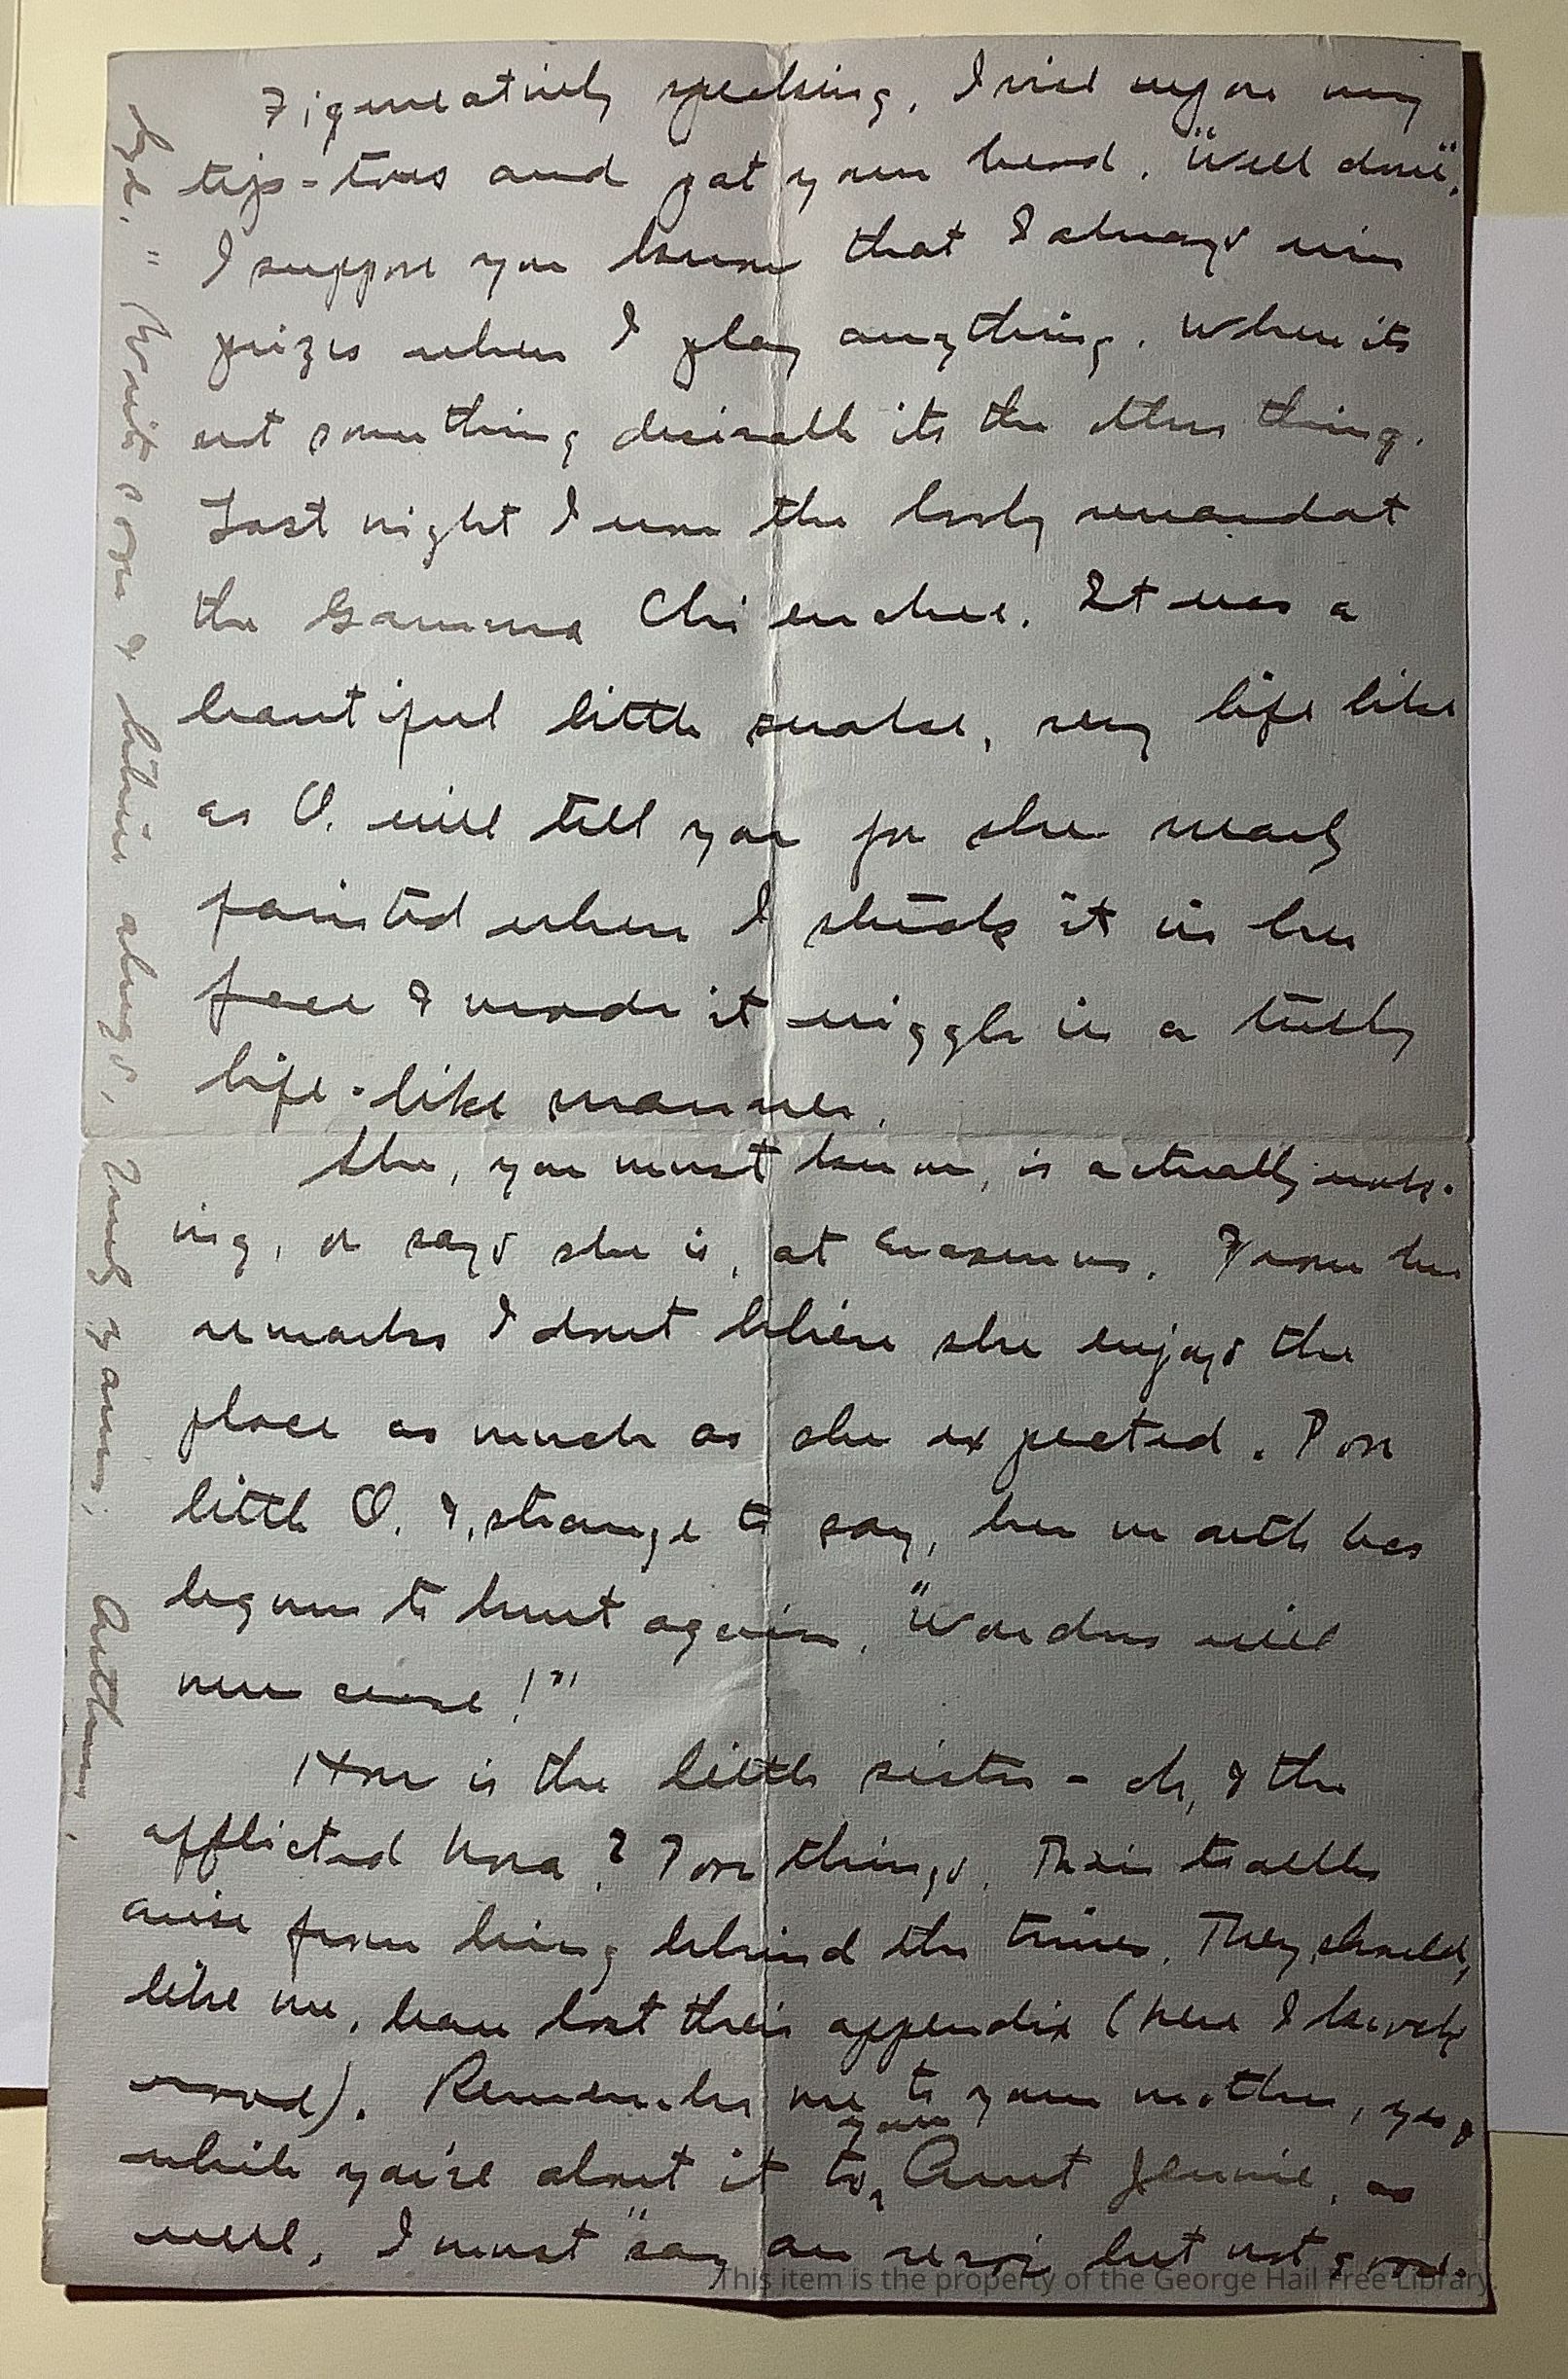 Figuratively speaking, I rise upon my
tip-toes and pat your head. "Well done".
I suppose you know that I always win
prizes when I play anything. When its
not something desirable its the other thing.
Last night I won the booby at
the Gamma Chi euchre. It was a
beautiful little snake, very life like
as O. will tell you for she nearly
fainted when I stuck it in her
face & made it wiggle in a truly
life-like manner.
She, you must know, is actually work-
ing, or says she is, at Erasmus. From her
remarks I don't believe she enjoys the
place as much as she expected. Poor
little O. &, strange to say, her mouth has
begun to hurt again. "Wonders will
never cease!"
How is the little sister - oh, & the
afflicted Nora? Poor things. Their troubles
arise from being behind the times. They should,
like me, have lost their appendix (here I knock
wood). Remember me to your mother, yes &
while you're about it to your Aunt Jennie, as
well. I must "say au revoir but not good-
bye." Write soon & believe always,
Truly yours,
Arthur.
This item is the property of the George Hail Free Library.